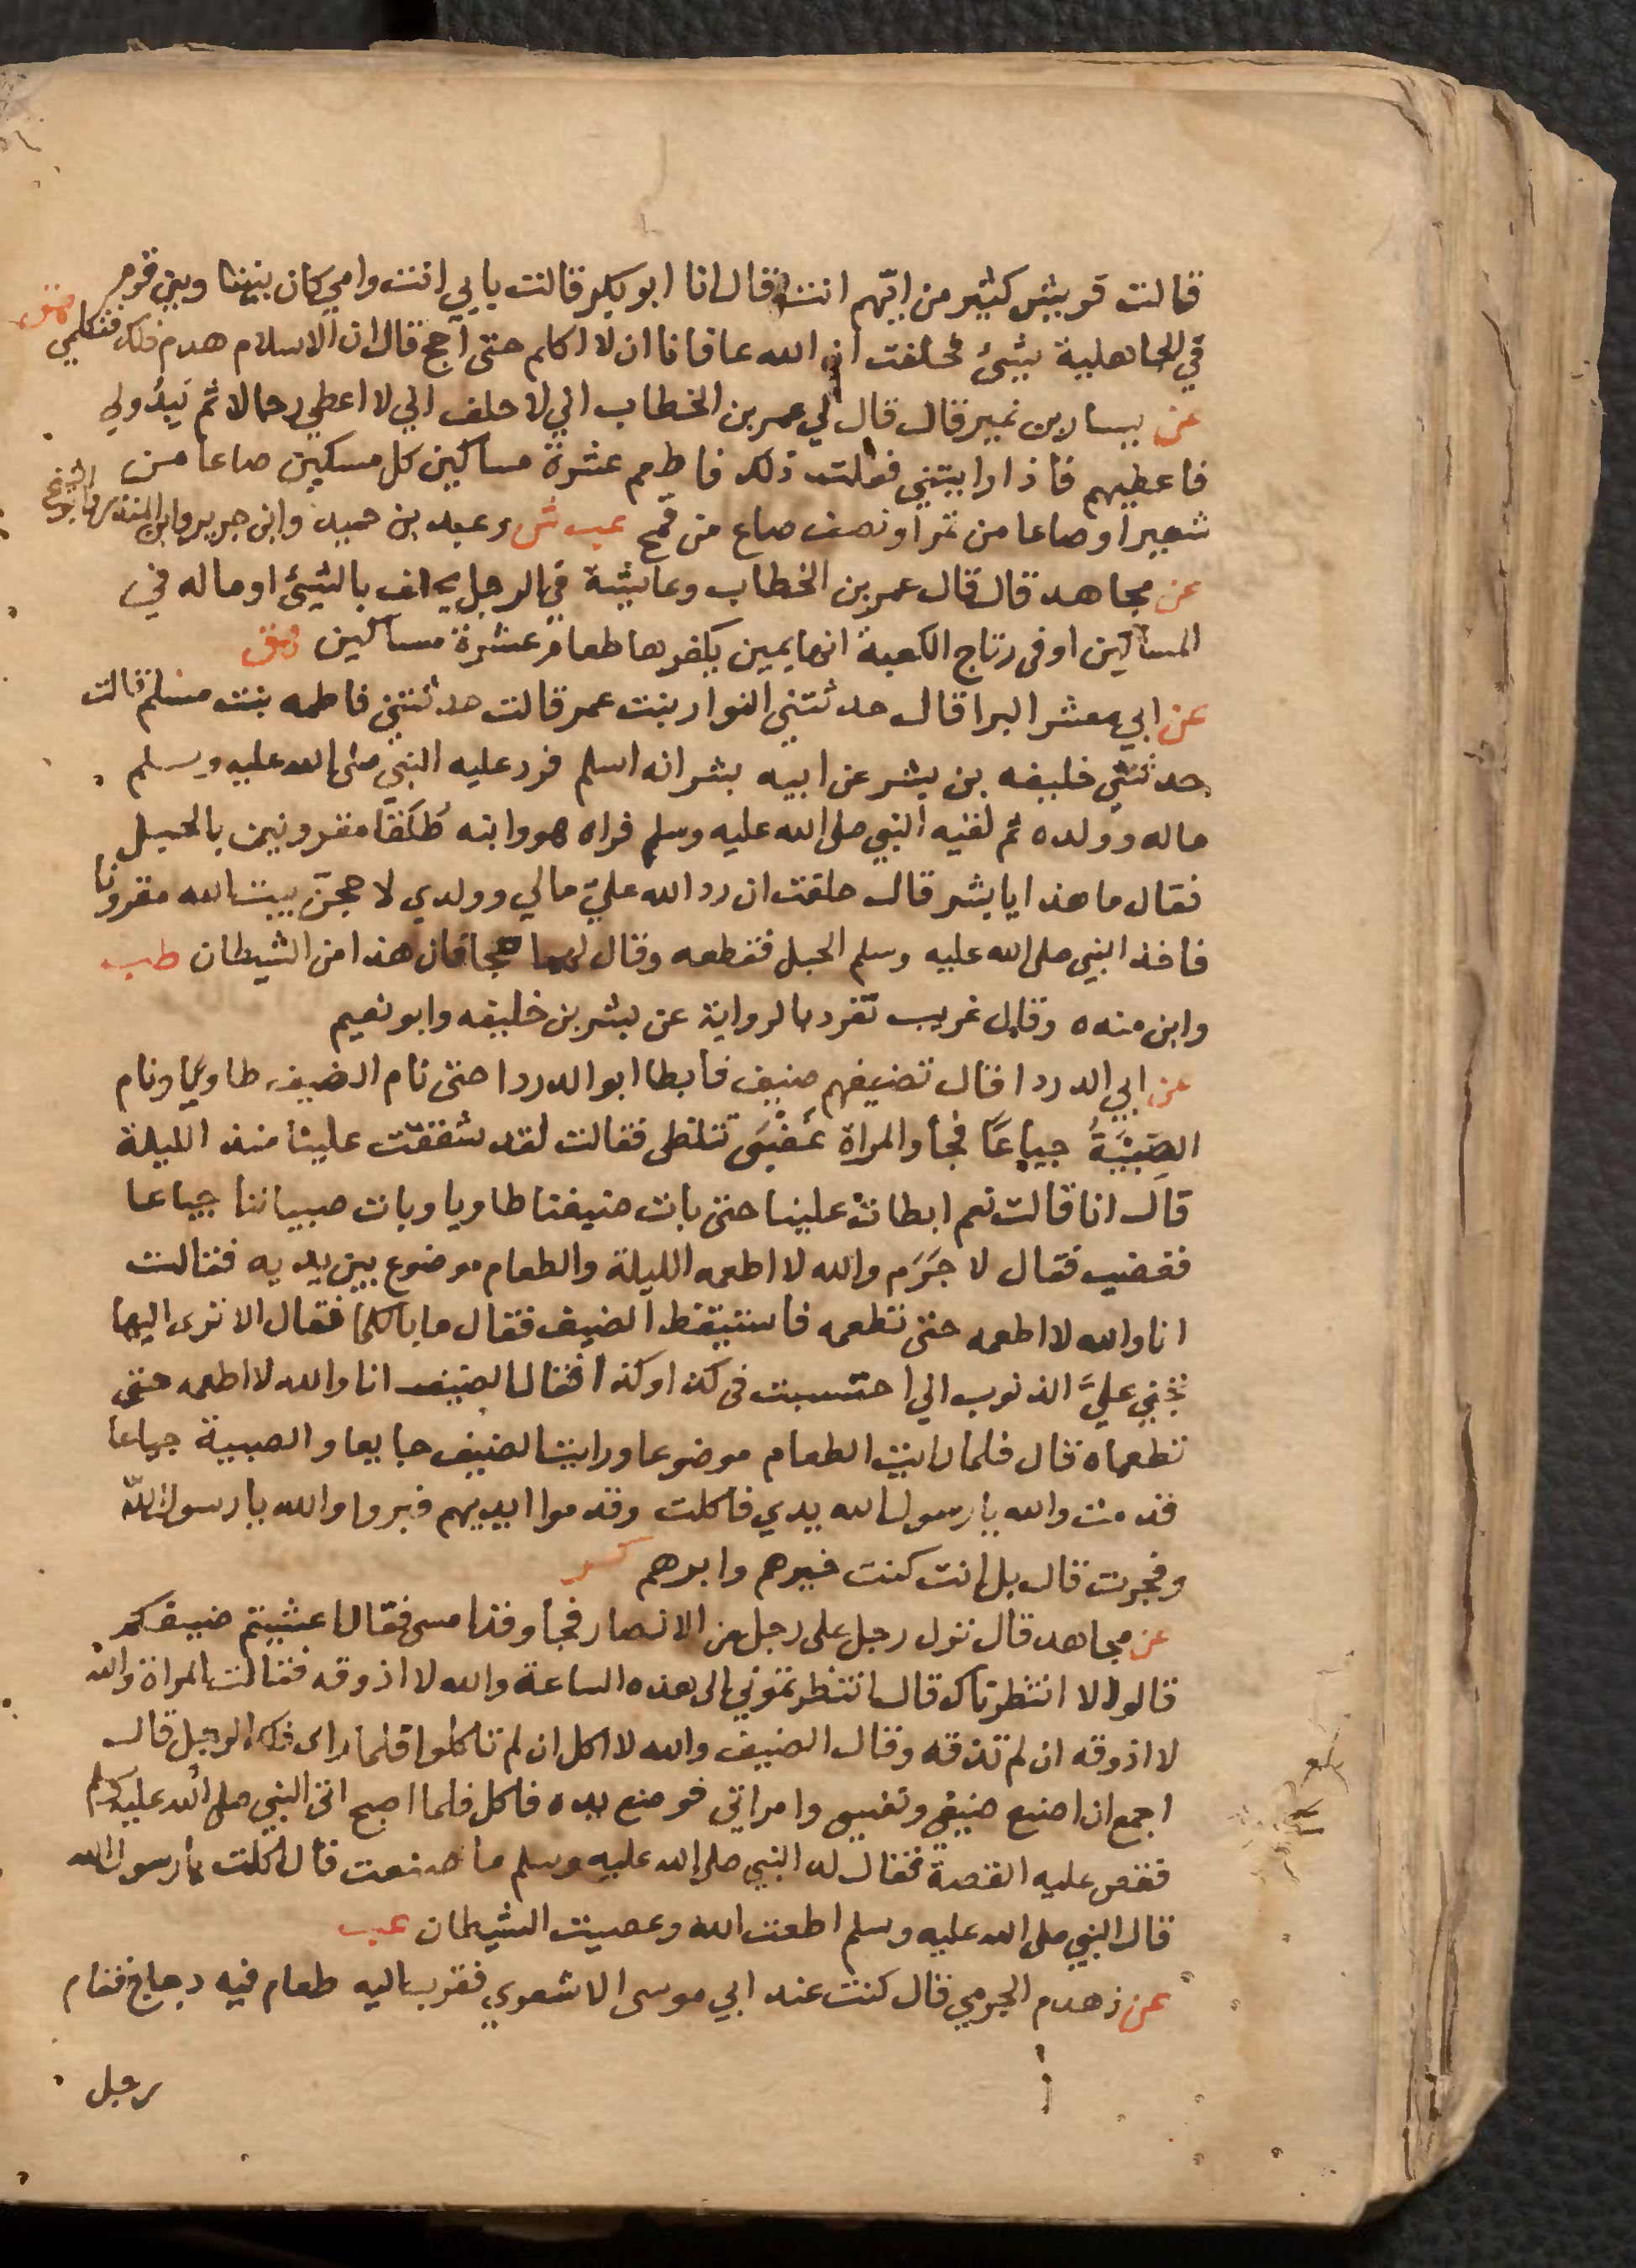 قالت قريش كثير من ايّهم انت قال انا ابو بكر قالت يا بي انت وامي كان بيننا وبين قوم
في الجاهلية شيئ فحلفت ان الله عافانا ان لا اكلم حتى احج قال ان الاسلام هدم ذلك فتكلمي هق
عن يسار بن نمير قال قال لي عمر بن الخطاب اني لا حلف ان لا اعطي رجالا ثم يبدولي
فاعطيهم فاذا رايتني فعلت ذلك فاطعم عشرة مساكين كل مسكين صاعا من
شعير او صاعا من تمر او نصف صاع من قمح عب ش وعبد بن حميد وابن جرير وابن المنذر وابو الشيخ
عن مجاهد قال قال عمر بن الخطاب وعائشة في الرجل يحلف بالشيئ او ماله في
المساكين او في رتاج الكعبة انها يمين يكفرها طعام عشرة مساكين هق
عن ابي معشر البرا قال حدثتني النوار بنت عمر قالت حدثتني فاطمه بنت مسلم قالت
حدثني خليفه بن بشر عن ابيه بشر انه اسلم فرد عليه النبي صلى الله عليه وسلم
ماله وولده ثم لقيه النبي صلى الله عليه وسلم فراه هو وابنه طلقا مقرونين بالحبل
فقال ما هذا يا بشر قال حلفت ان رد الله عليّ مالي وولدي لا حجنّ بيت الله مقرونا
فاخذ النبي صلى الله عليه وسلم الحبل فقطعه وقال لهما حجا فان هذا من الشيطان طب
وابن منده وقال غريب تفرد بالرواية عن بشر بن خليفه وابو نعيم
عن ابي الدردا قال تضيفهم ضيف فابطا ابو الدردا حتى نام الضيف طاويا ونام
الصِبْيَةُ جياعًا فجأ والمراة غضبى تتلظى فقالت لقد شققت علينا منذ الليلة
قال انا قالت نعم ابطات علينا حتى بات ضيفنا طاويا وبات صبياننا جياعا
فغضب فقال لا جَرَم والله لا اطعمه الليلة والطعام موضوع بين يديه فقالت
انا والله لا اطعمه حتى تطعمه فاستيقظ الضيف فقال ما بالكما فقال الا ترى اليها
تجني عليّ الذنوب اني احتسبت في كذا وكذا فقال الضيف انا والله لا اطعمه حتى
تطعماه قال فلما رايت الطعام موضوعا ورايت الضيف جايعا والصبية جياعا
قدمت والله يا رسول الله يدي فاكلت وقدموا ايديهم فبروا والله يا رسول الله
وفجرت قال بل انت كنت خيرهم وابرهم كر
عن مجاهد قال نزل رجل على رجل من الانصار فجأ وقد امسى فقال اعشيتم ضيفكم
قالوا لا انتظرناك قال انتظرتموني الى هذه الساعة والله لا اذوقه فقالت المراة والله
لا اذوقه ان لم تذقه وقال الضيف والله لا اكل ان لم تاكلوا فلما راى ذلك الرجل قال
اجمع ان امنع ضيفي ونفسي وامراتي فوضع يده فاكل فلما اصبح اتى النبي صلى الله عليه وسلم
فقص عليه القصة فقال له النبي صلى الله عليه وسلم ما صنعت قال اكلت يا رسول الله
قال النبي صلى الله عليه وسلم اطعت الله وعصيت الشيطان عب
عن زهدم الجرمي قال كنت عند ابي موسى الاشعري فقرب اليه طعام فيه دجاج فقام
رجل